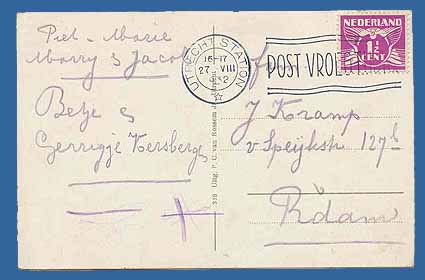 Piet - Marie
Marry & Jacob
Betje &
Gerrigje Kersberg
UTRECHT STATION
16-17
27 VIII
POST VROEG
NEDERLAND
1½
CENT
J Kramp
v Speijkstr 127b
R'dam
318 Uitg. P. U. van Rossem